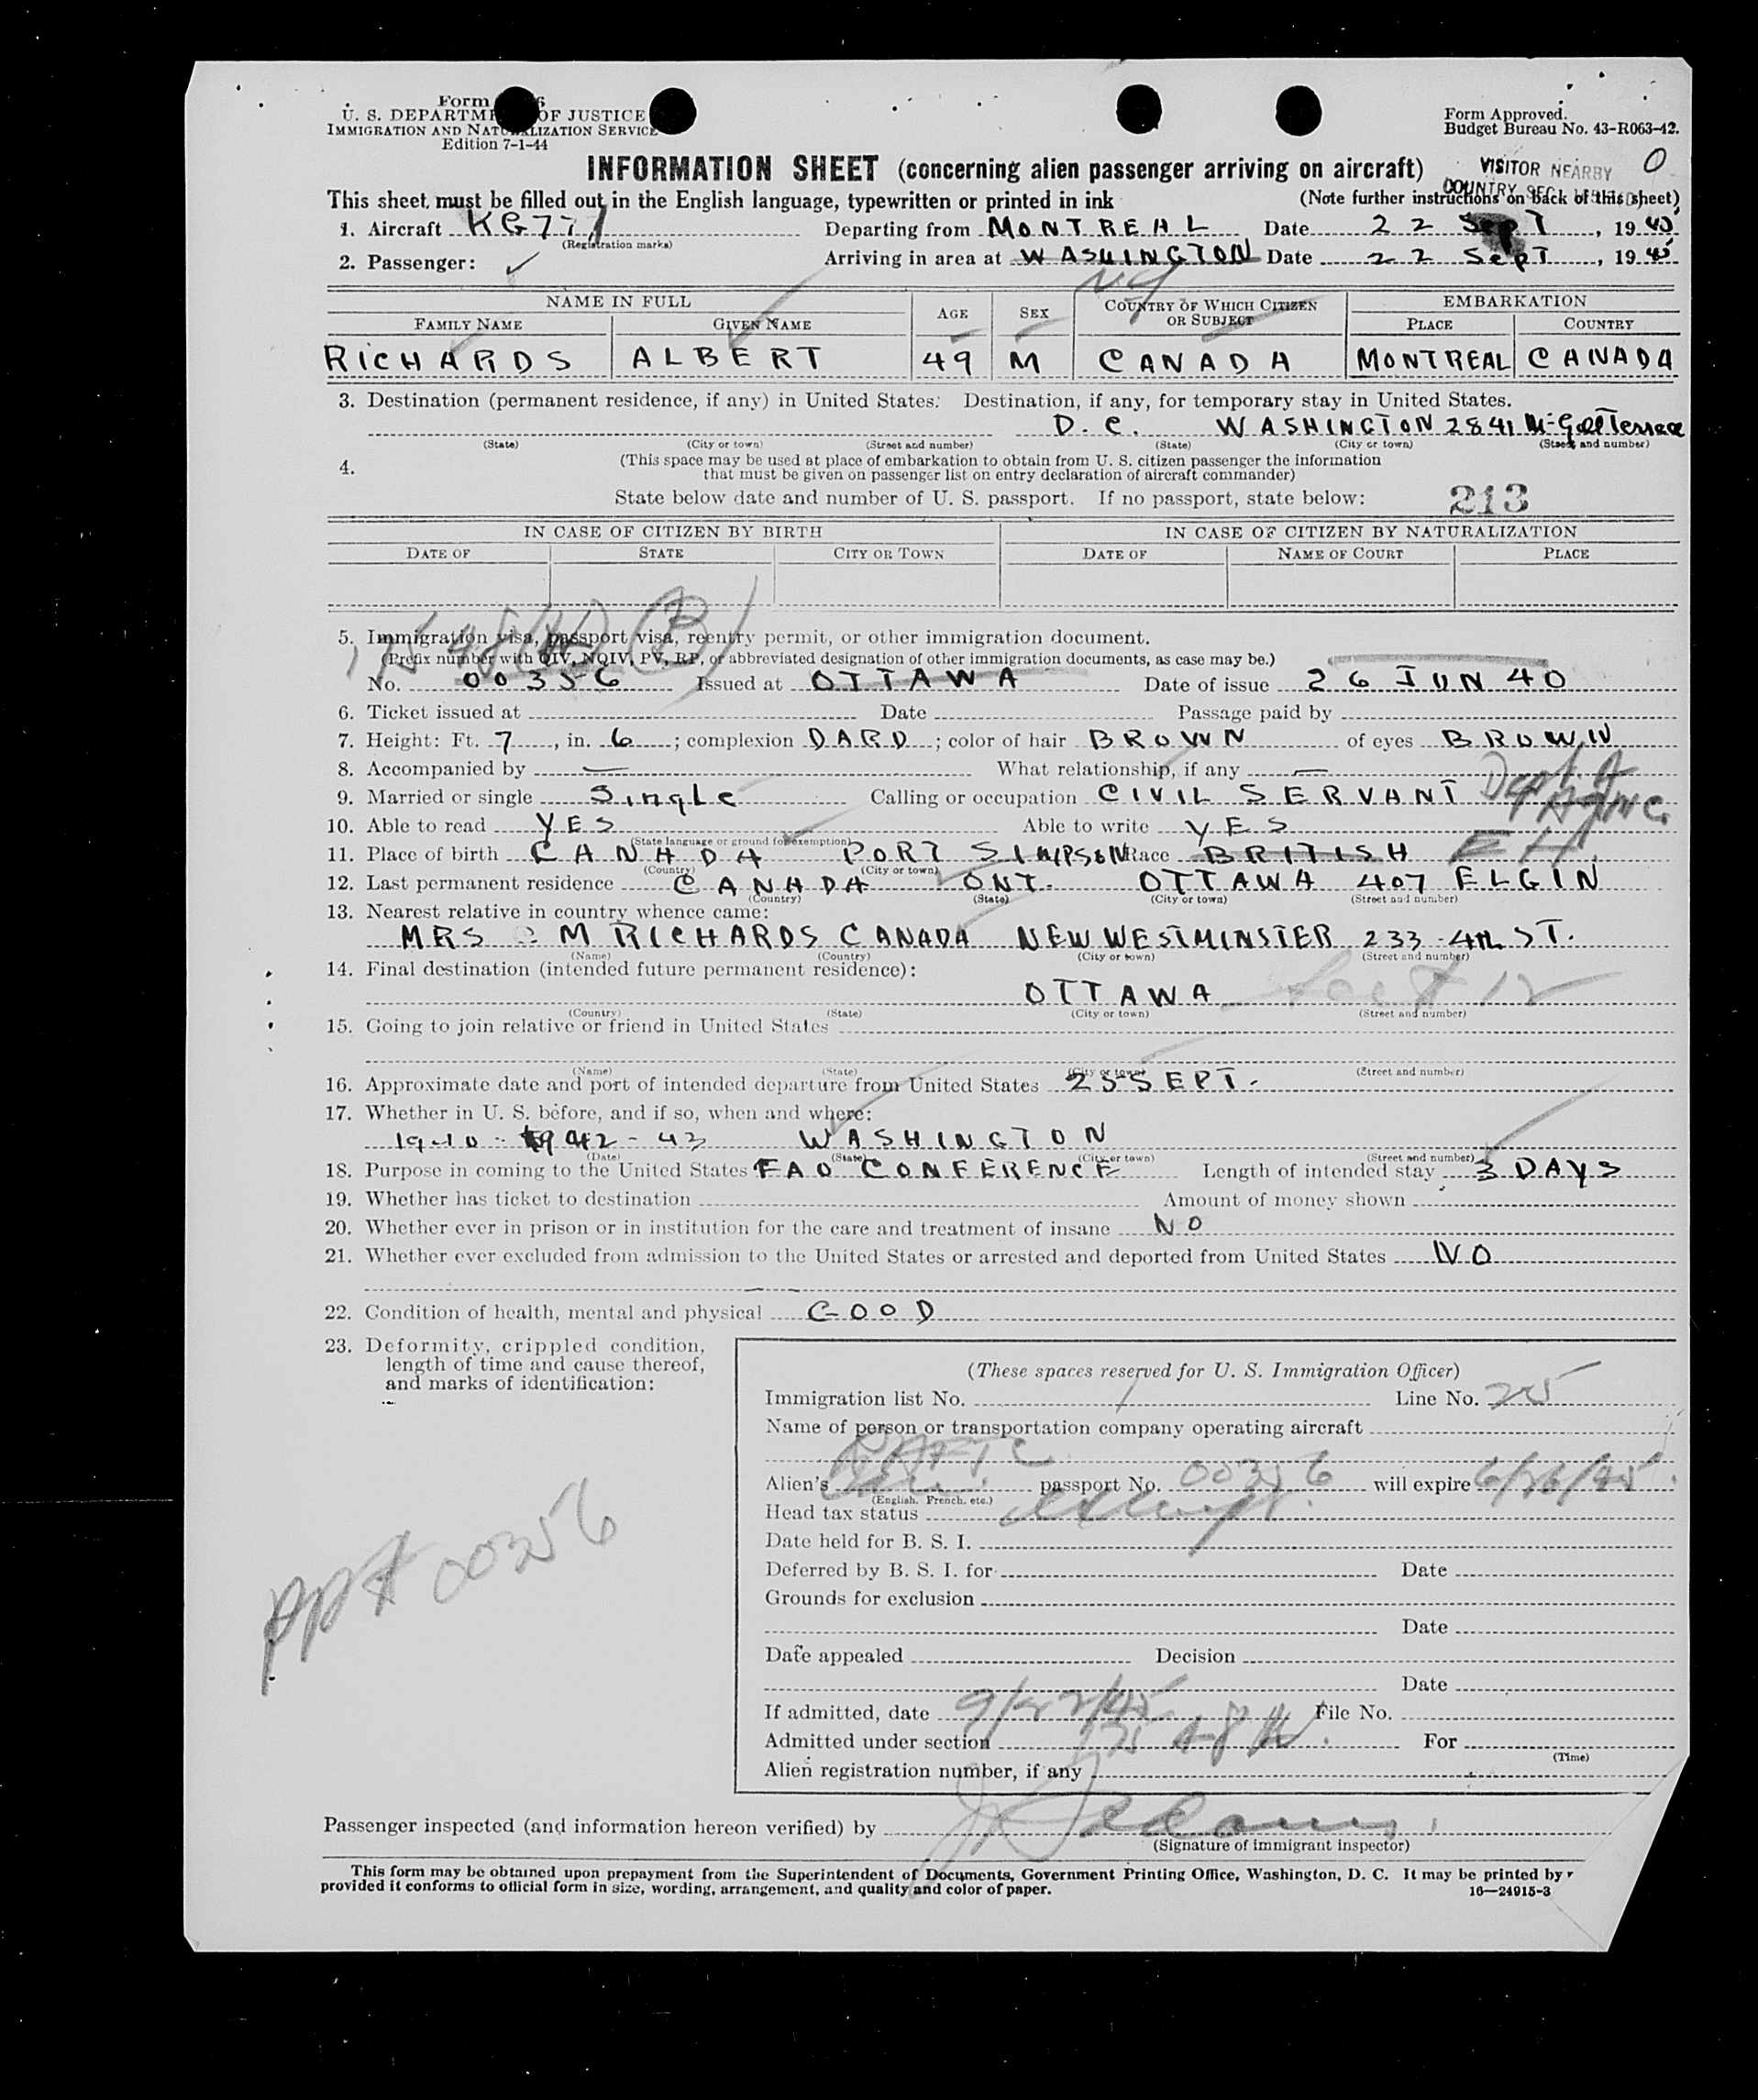 Form
U. S. DEPARTM OF JUSTICE
IMMIGRATION AND NATURALIZATION SERVICE
Edition 7-1-44
Form Approved.
Budget Bureau No. 43-R063-42.
INFORMATION SHEET (concerning alien passenger arriving on aircraft)
VISITOR NEARBY O
COUNTRY SEC.
This sheet must be filled out in the English language, typewritten or printed in ink (Note further instructions on back of this sheet)
1. Aircraft KG777 Departing from MONTREAL Date 22 SEPT, 1945
(Registration marks)
2. Passenger: ✓ Arriving in area at WASHINGTON Date 22 SEPT, 1945
NY
NAME IN FULL AGE SEX COUNTRY OF WHICH CITIZEN OR SUBJECT EMBARKATION
FAMILY NAME GIVEN NAME PLACE COUNTRY
RICHARDS ALBERT 49 M CANADA MONTREAL CANADA
3. Destination (permanent residence, if any) in United States: Destination, if any, for temporary stay in United States.
D. C. WASHINGTON 2841 Terrace
(State) (City or town) (Street and number) (State) (City or town) (Street and number)
4. (This space may be used at place of embarkation to obtain from U. S. citizen passenger the information
that must be given on passenger list on entry declaration of aircraft commander)
State below date and number of U. S. passport. If no passport, state below: 213
IN CASE OF CITIZEN BY BIRTH IN CASE OF CITIZEN BY NATURALIZATION
DATE OF STATE CITY OR TOWN DATE OF NAME OF COURT PLACE
(B)
5. Immigration visa, passport visa, reentry permit, or other immigration document.
(Prefix number with QIV, NQIV, PV, RP, or abbreviated designation of other immigration documents, as case may be.)
No. 00356 Issued at OTTAWA Date of issue 26 JUN 40
6. Ticket issued at Date Passage paid by
7. Height: Ft. 7, in. 6; complexion DARD; color of hair BROWN of eyes BROWN
8. Accompanied by — What relationship, if any —
9. Married or single Single Calling or occupation CIVIL SERVANT Dept. of Agric.
10. Able to read YES Able to write YES
(State language or ground for exemption)
11. Place of birth CANADA PORT SIMPSON Race BRITISH
(Country) (City or town)
12. Last permanent residence CANADA ONT. OTTAWA 407 ELGIN
(Country) (State) (City or town) (Street and number)
13. Nearest relative in country whence came:
MRS M RICHARDS CANADA NEW WESTMINSTER 233-4th ST.
(Name) (Country) (City or town) (Street and number)
14. Final destination (intended future permanent residence):
OTTAWA
(Country) (State) (City or town) (Street and number)
15. Going to join relative or friend in United States
(Name) (State) (City or town) (Street and number)
16. Approximate date and port of intended departure from United States 25 SEPT.
17. Whether in U. S. before, and if so, when and where:
1940 - 1942 - 43 WASHINGTON
(Date) (State) (City or town) (Street and number)
18. Purpose in coming to the United States FAO CONFERENCE Length of intended stay 3 DAYS
19. Whether has ticket to destination Amount of money shown
20. Whether ever in prison or in institution for the care and treatment of insane NO
21. Whether ever excluded from admission to the United States or arrested and deported from United States NO
22. Condition of health, mental and physical GOOD
23. Deformity, crippled condition,
length of time and cause thereof,
and marks of identification:
(These spaces reserved for U. S. Immigration Officer)
Immigration list No. 1 Line No. 25
Name of person or transportation company operating aircraft
RAFTC
Alien's passport No. 00356 will expire 6/26/45
(English, French, etc.)
Head tax status exempt.
Date held for B. S. I.
Deferred by B. S. I. for Date
Grounds for exclusion
Date
Date appealed Decision
Date
If admitted, date 9/22/45 File No.
Admitted under section For
(Time)
Alien registration number, if any
PP# 00356
Passenger inspected (and information hereon verified) by
(Signature of immigrant inspector)
This form may be obtained upon prepayment from the Superintendent of Documents, Government Printing Office, Washington, D. C. It may be printed by
provided it conforms to official form in size, wording, arrangement, and quality and color of paper. 16—24915-3